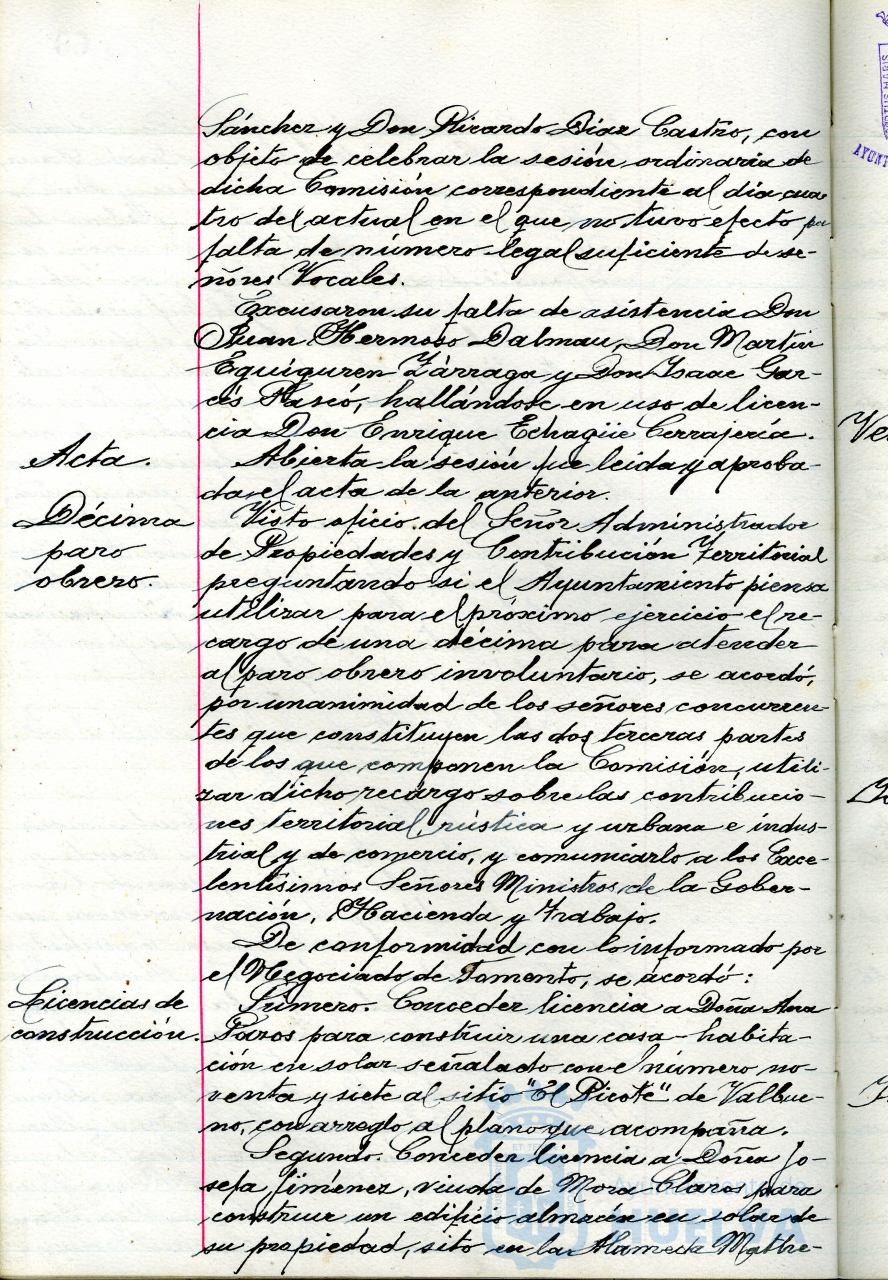 Sánchez y Don Ricardo Díaz Castro, con
objeto de celebrar la sesión ordinaria de
dicha Comisión correspondiente al día cua
tro del actual en el que no tuvo efecto por
falta de número legal suficiente de se-
ñores Vocales.
Excusaron su falta de asistencia Don
Juan Hermoso Dalmau, Don Martín
Eguiguren Zárraga y Don Isaac Gar-
cés Pascó, hallándose en uso de licen-
cia Don Enrique Echagüe Cerrajería.
Acta.
Abierta la sesión fue leida y aproba-
da el acta de la anterior.
Décima
paro
obrero.
Visto oficio del Señor Administrador
de Propiedades y Contribución Territorial
preguntando si el Ayuntamiento piensa
utilizar para el próximo ejercicio el re-
cargo de una décima para atender
al paro obrero involuntario, se acordó,
por unanimidad de los señores concurren-
tes que constituyen las dos terceras partes
de los que componen la Comisión, utili-
zar dicho recargo sobre las contribucio-
nes territorial, rústica y urbana e indus-
trial y de comercio, y comunicarlo a los Exce-
lentísimos Señores Ministros de la Gober-
nación, Hacienda y Trabajo.
De conformidad con lo informado por
el Negociado de Fomento, se acordó:
Licencias de
construcción.
Primero. Conceder licencia a Doña Ana
Pazos para construir una casa-habita-
ción en solar señalado con el número no-
venta y siete al sitio "El Picote" de Valbue-
no, con arreglo al plano que acompaña.
Segundo. Conceder licencia a Doña Jo-
sefa Jiménez, viuda de Mora Claros para
construir un edificio almacén en solar de
su propiedad, sito en la Alameda Mathe-
Ayuntamiento de
HUELVA